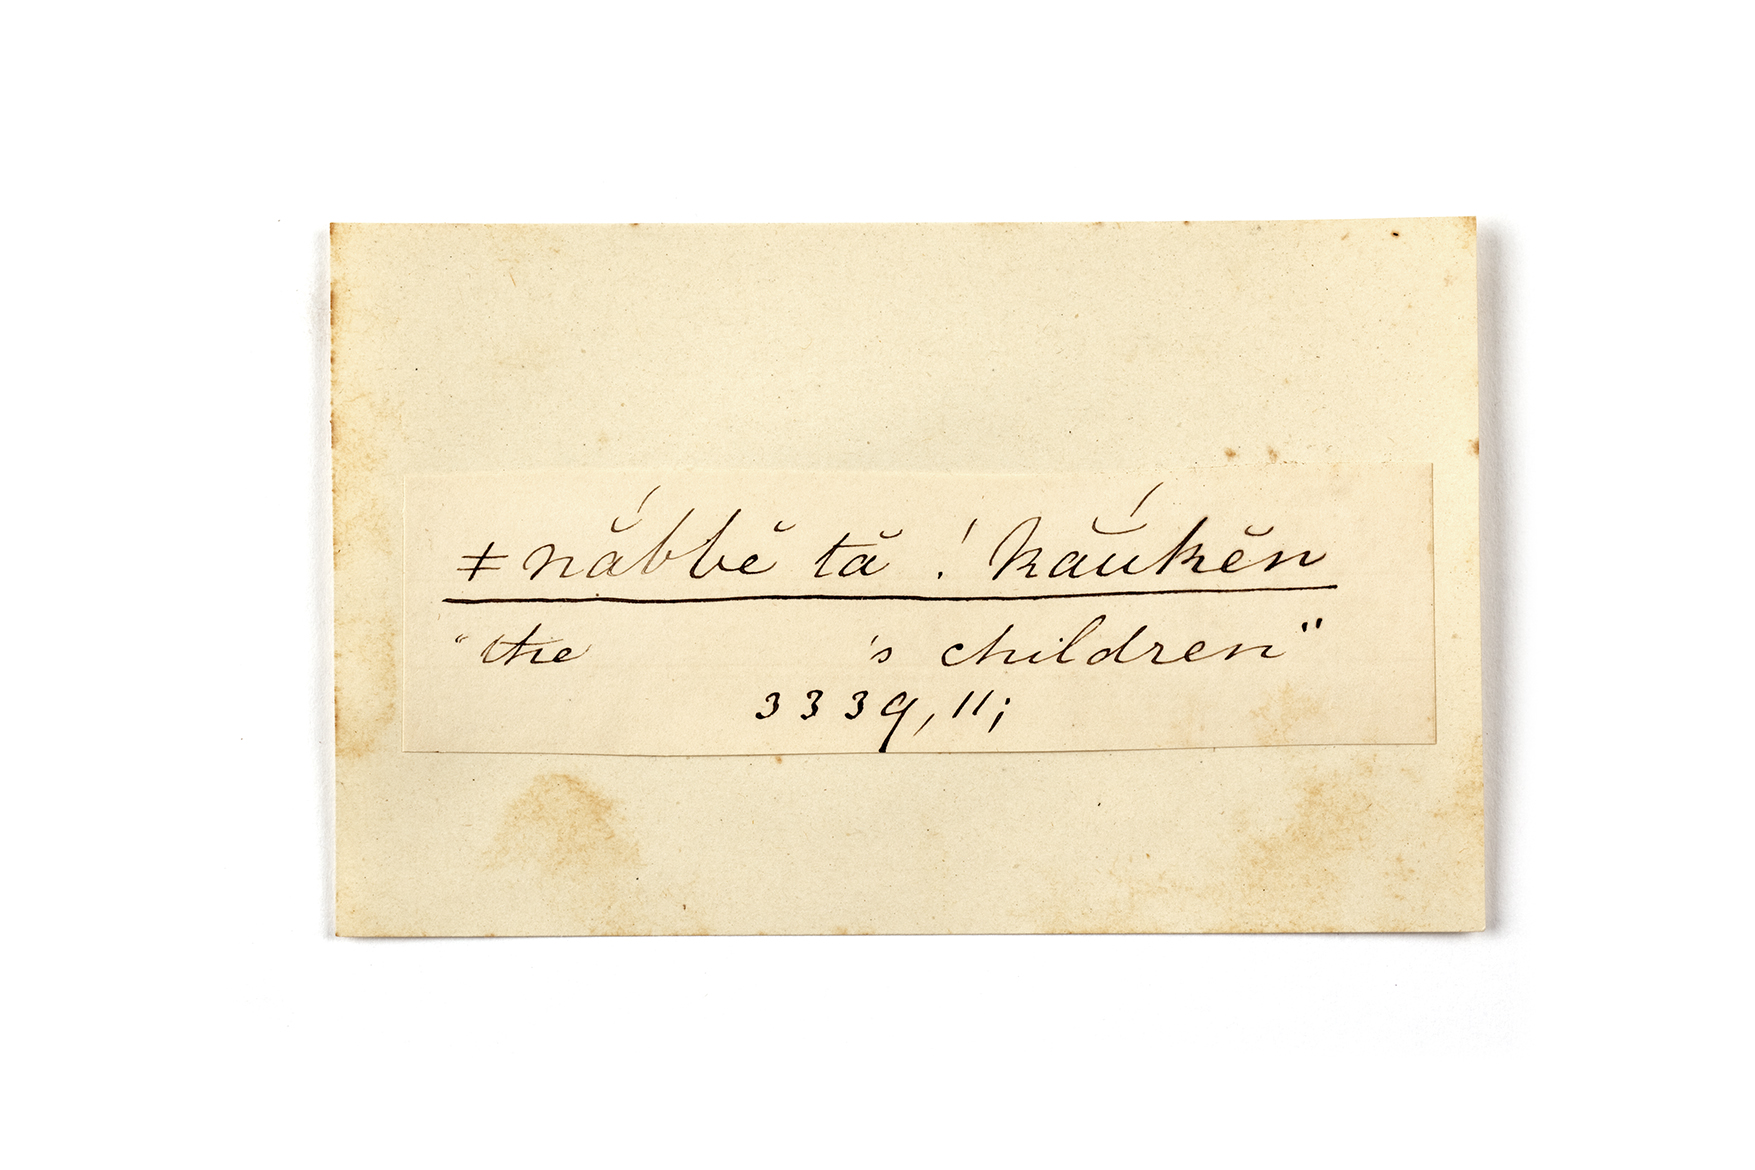 ǂnā̆́bbĕ tă ǃkắŭkĕn
"the 's children"
3339, 11;